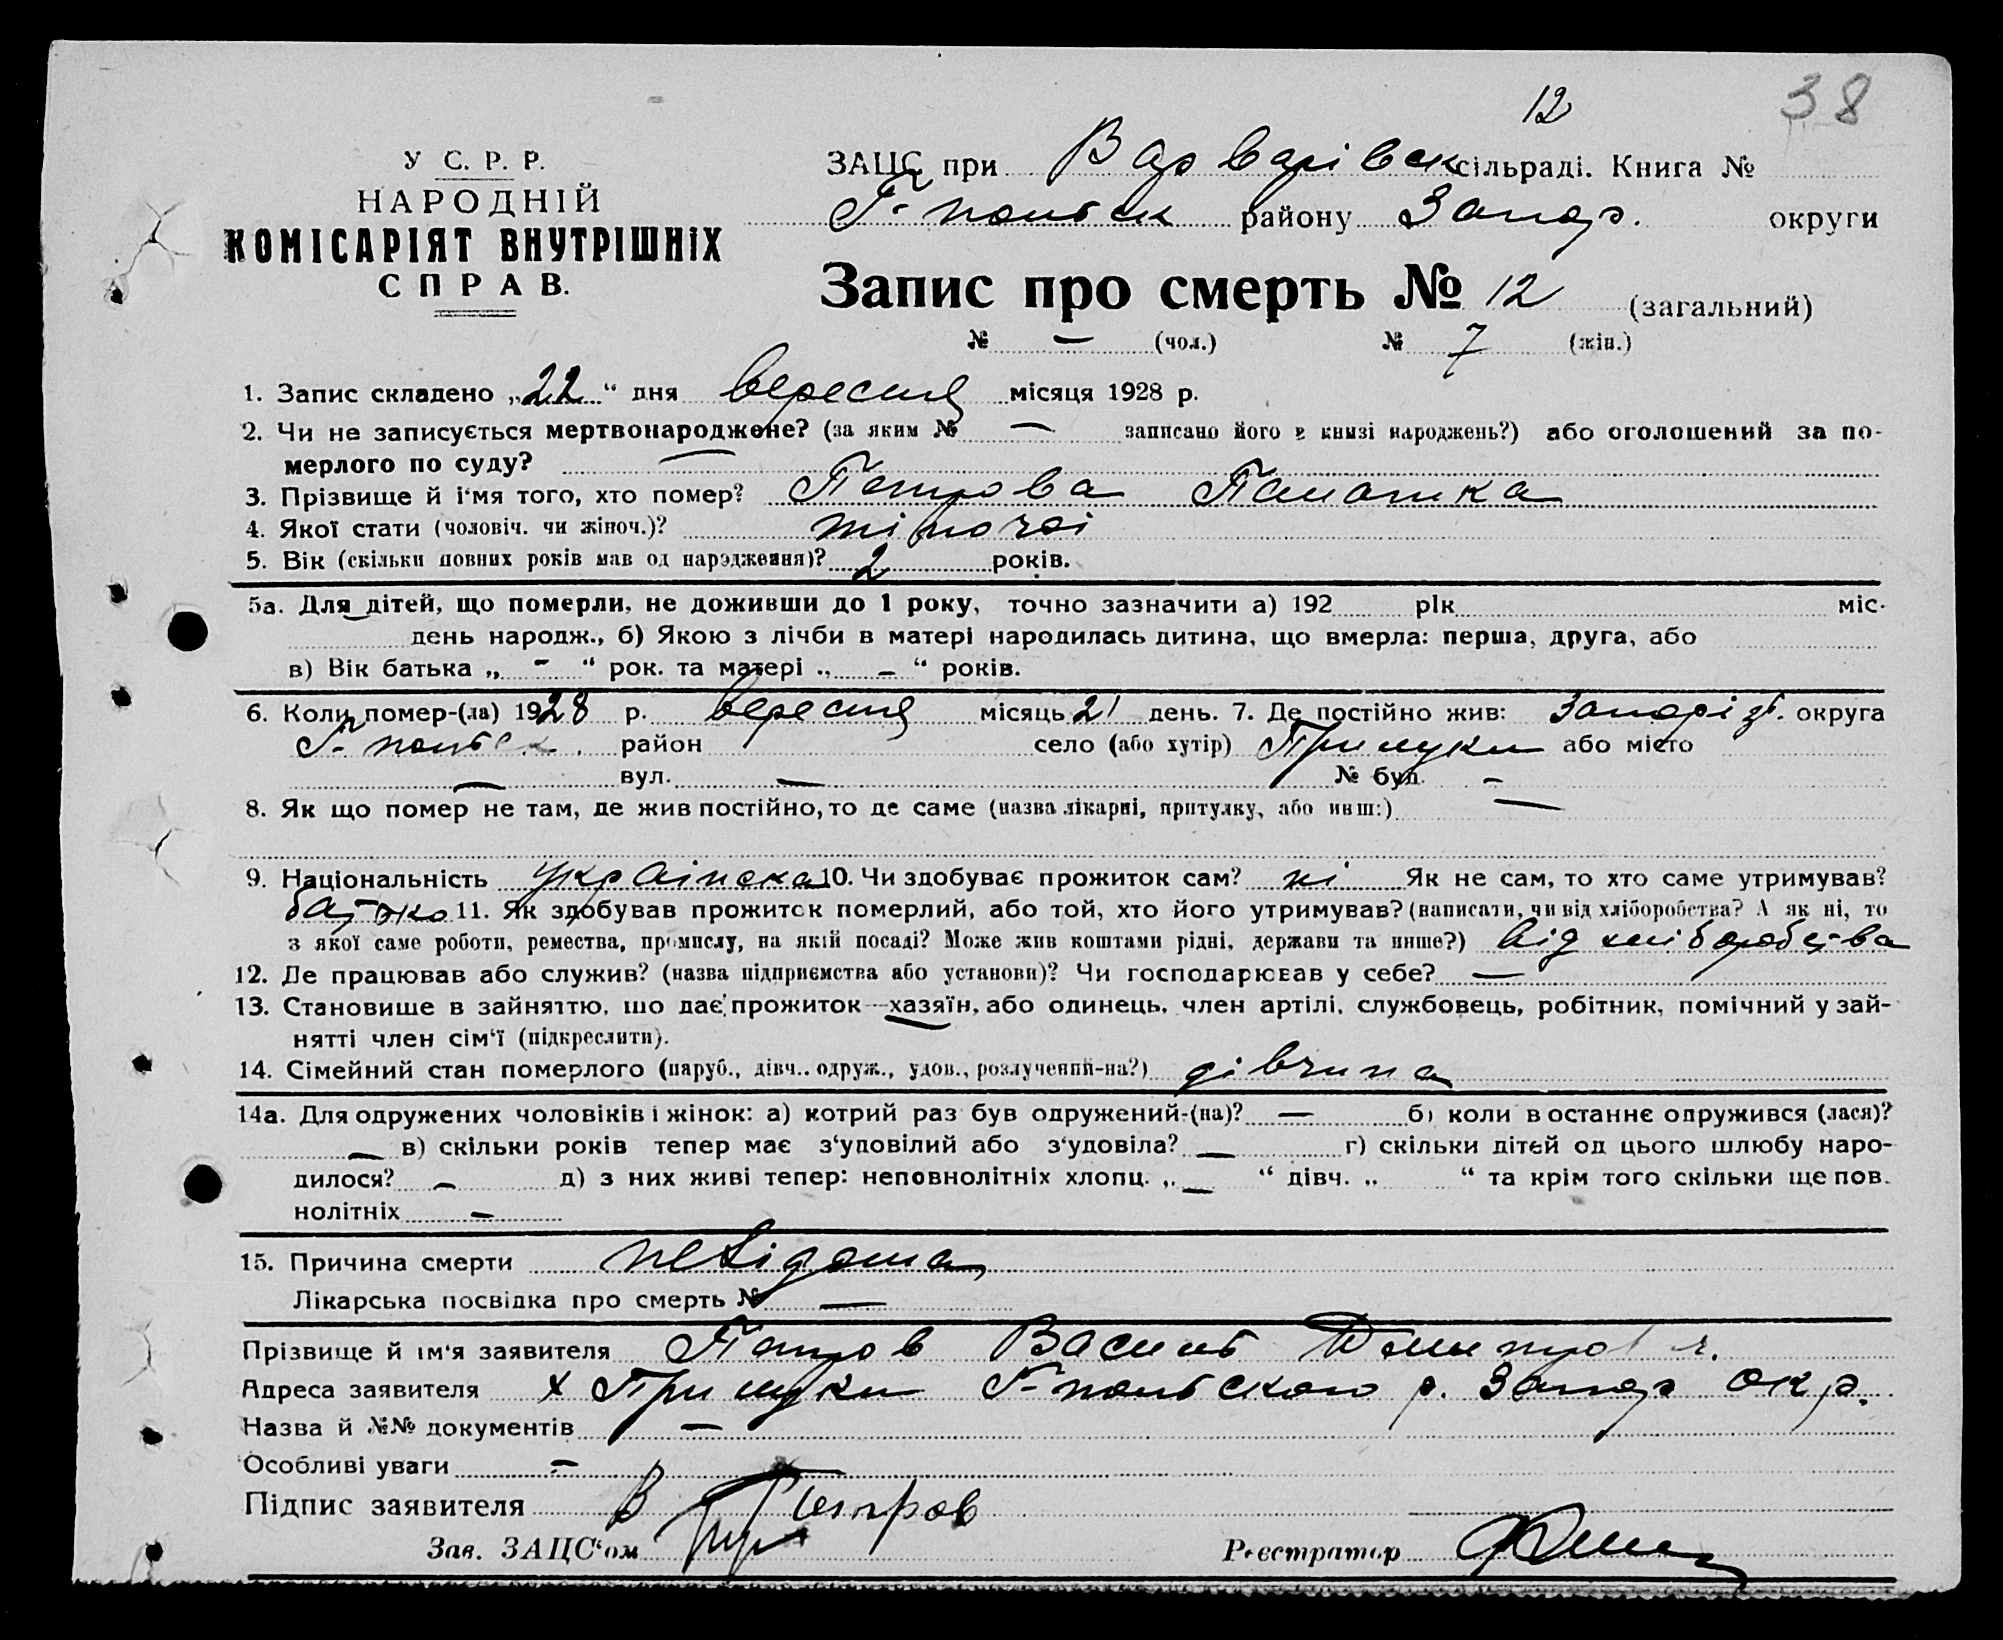 12
38
У С. Р. Р.
НАРОДНІЙ
КОМІСАРІЯТ ВНУТРІШНІХ
СПРАВ.
ЗАЦС при Варварівськ сільраді. Книга №
Г-польськ району Запор. округи
Запис про смерть № 12 (загальний)
№ — (чол.) № 7 (жін.)
1. Запис складено „22“ дня вересня місяця 1928 р.
2. Чи не записується мертвонароджене? (за яким № — записано його в книзі народжень?) або оголошений за по-
мерлого по суду? —
3. Прізвище й і‘мя того, хто помер? Петрова Палашка
4. Якої стати (чоловіч. чи жіноч.)? жіночої
5. Вік (скільки повних років мав од народження)? 2 років.
5а. Для дітей, що померли, не доживши до 1 року, точно зазначити а) 192 рік міс.
день народж., б) Якою з лічби в матері народилась дитина, що вмерла: перша, друга, або
в) Вік батька „ - “ рок. та матері „ - “ років.
6. Коли помер-(ла) 1928 р. вересня місяць 21 день. 7. Де постійно жив: Запоріз. округа
Г-польськ. район село (або хутір) або місто
— вул. — № буд. -
8. Як що помер не там, де жив постійно, то де саме (назва лікарні, притулку, або инш:) —
9. Національність Українска 10. Чи здобуває прожиток сам? ні Як не сам, то хто саме утримував?
батько 11. Як здобував прожиток померлий, або той, хто його утримував? (написати, чи від хліборобства? А як ні, то
з якої саме роботи, ремества, промислу, на якій посаді? Може жив коштами рідні, держави та инше?) від хліборобства
12. Де працював або служив? (назва підприємства або установи)? Чи господарював у себе? —
13. Становище в зайняттю, що дає прожиток—хазяїн, або одинець, член артілі, службовець, робітник, помічний у зай-
нятті член сім‘ї (підкреслити).
14. Сімейний стан померлого (паруб., дівч.. одруж., удов., розлучений-на?) дівчина
14а. Для одружених чоловіків і жінок: а) котрий раз був одружений-(на)? — б) коли в останнє одружився (лася)?
— в) скільки років тепер має з‘удовілий або з‘удовіла? — г) скільки дітей од цього шлюбу наро-
дилося? - д) з них живі тепер: неповнолітніх хлопц. „ — “ дівч. „ “ та крім того скільки ще пов.
нолітніх -
15. Причина смерти невідома
Лікарська посвідка про смерть № —
Прізвище й ім‘я заявителя Петров Василь
Адреса заявителя х Г-польского р. Запор окр.
Назва й №№ документів —
Особливі уваги -
Підпис заявителя В Петров
Зав. ЗАЦС‘ом Реєстратор